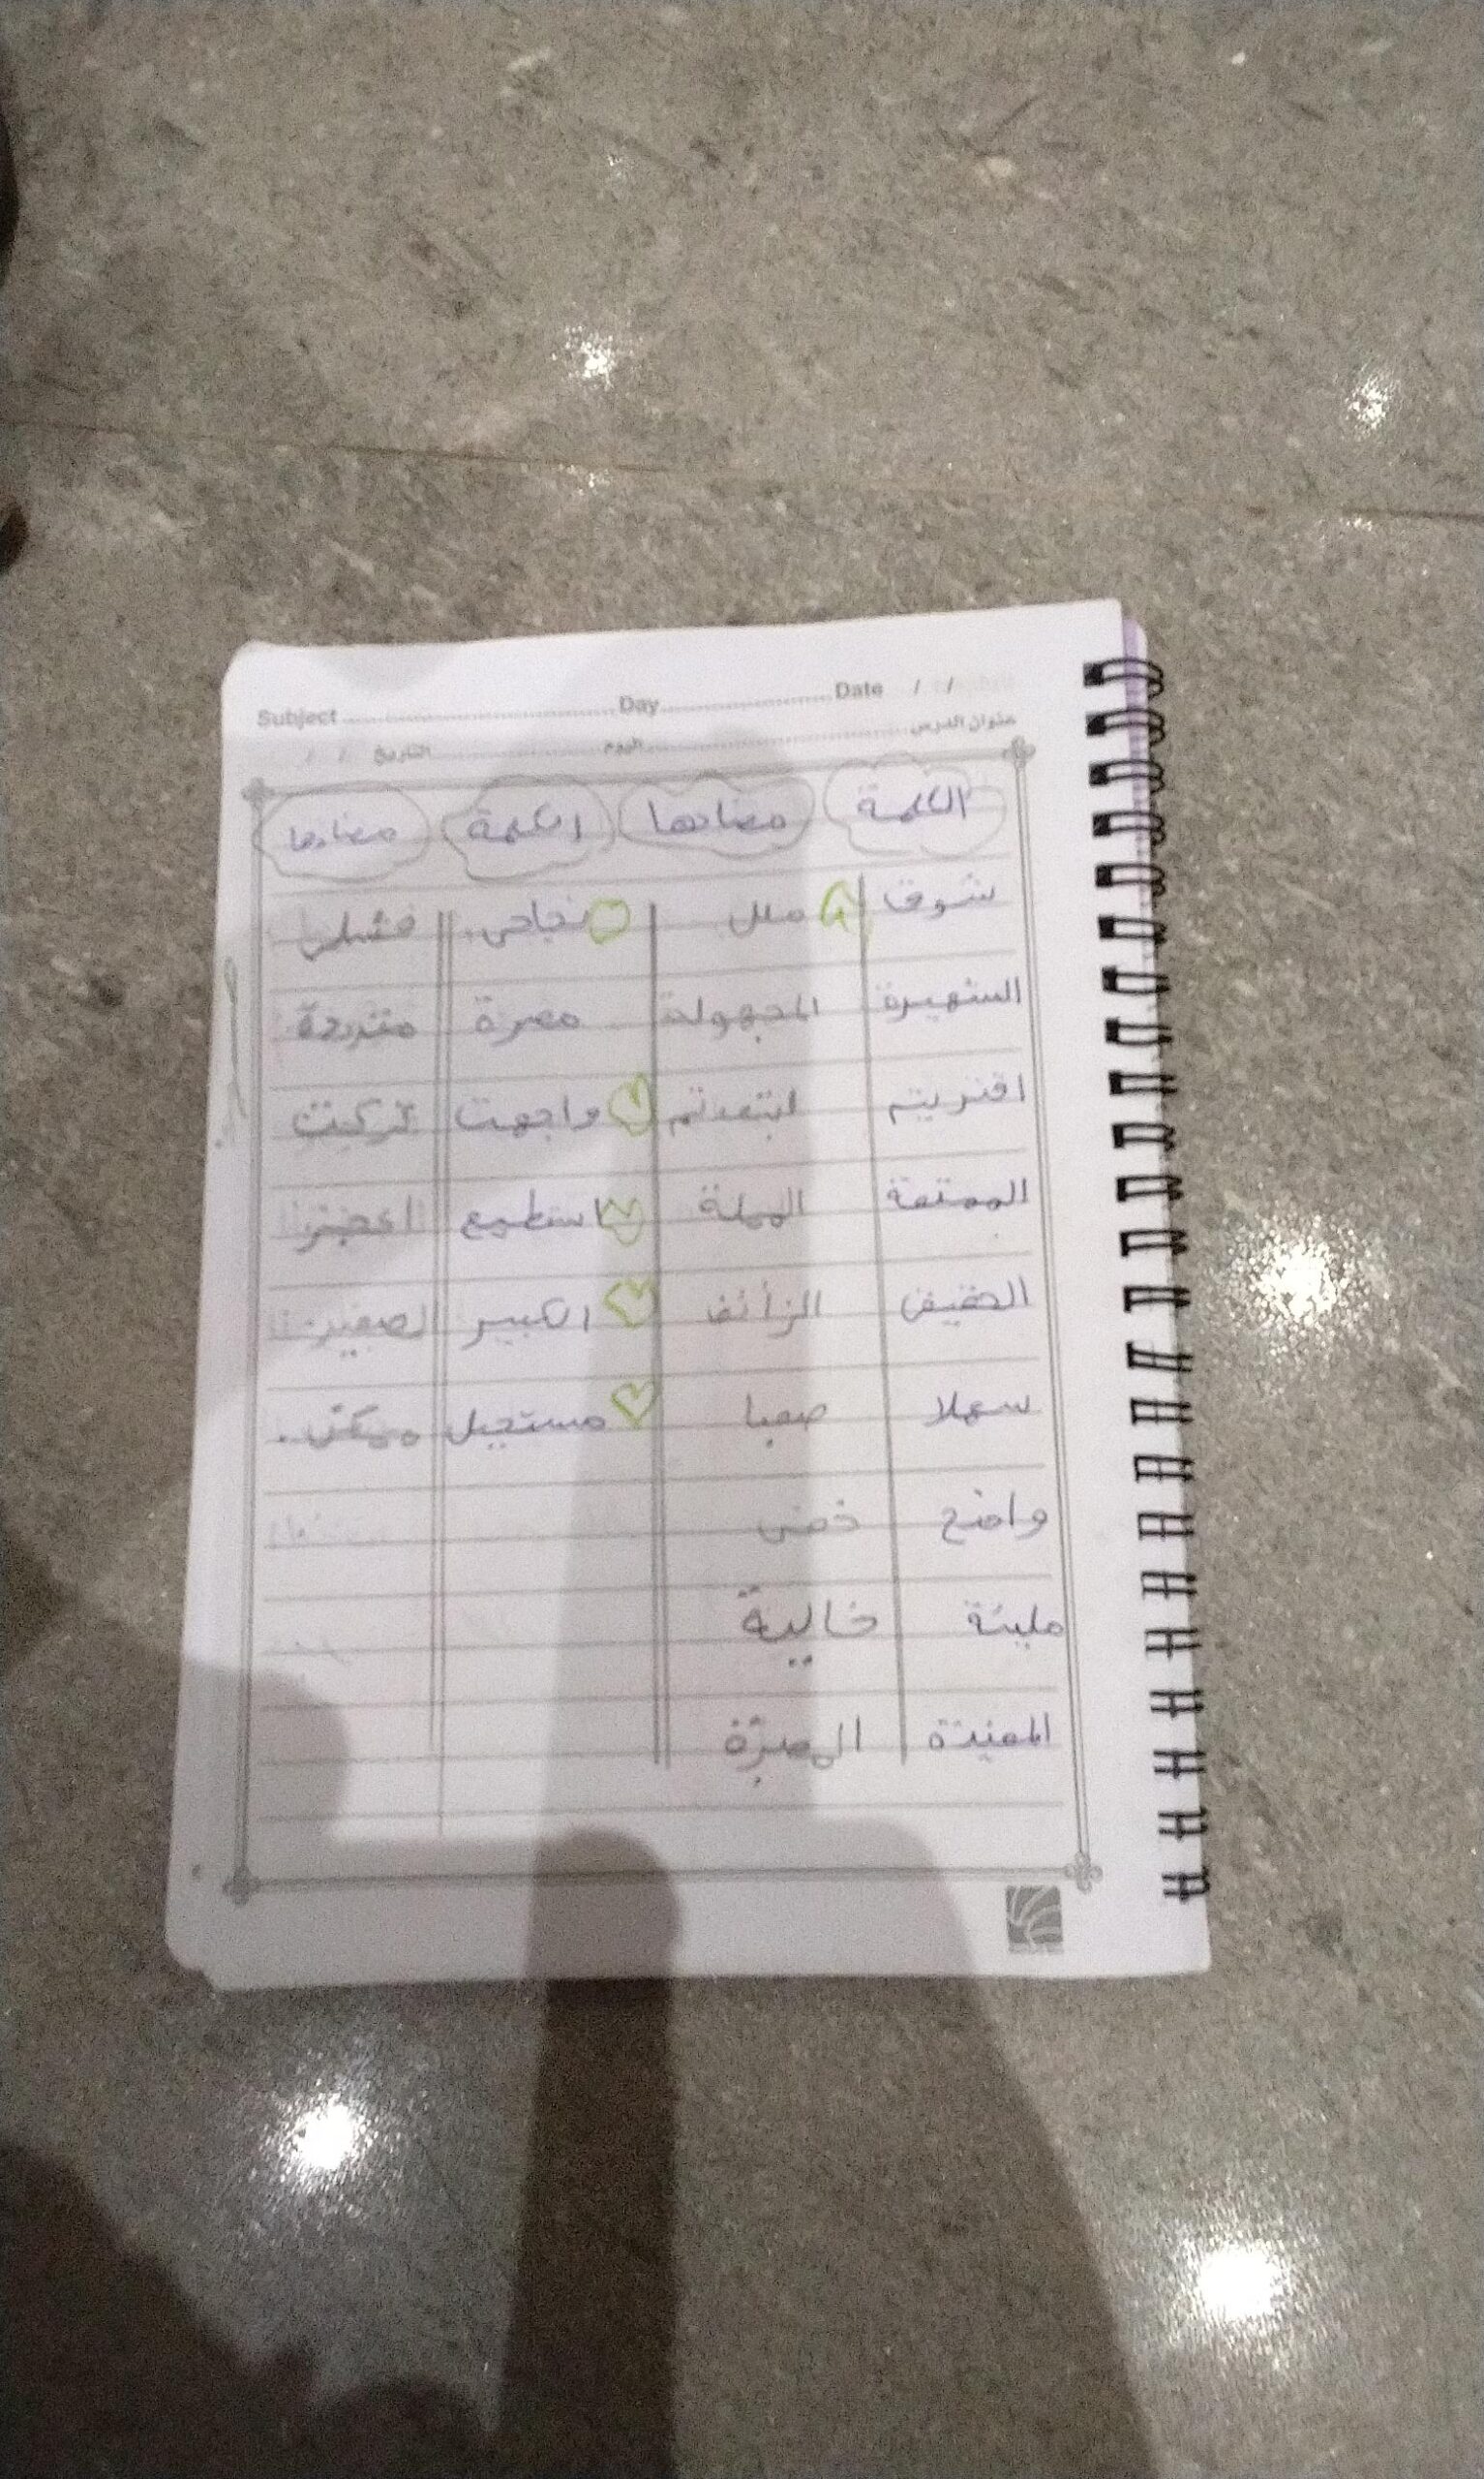 Subject Day Date / /
عنوان الدرس اليوم التاريخ / /
الكلمة مضادها الكلمة مضادها
شوق ملل نجاحي فشلي
الشهيرة المجهولة مصرة
اقتربتم ابتعدتم واجهت تركت
الممتعة المملة استطع اعجز
الزائف الكبير الصغير
سهلا صعبا مستحيل ممكن
واضح خفي
مليئة خالية
المفيدة المضرة